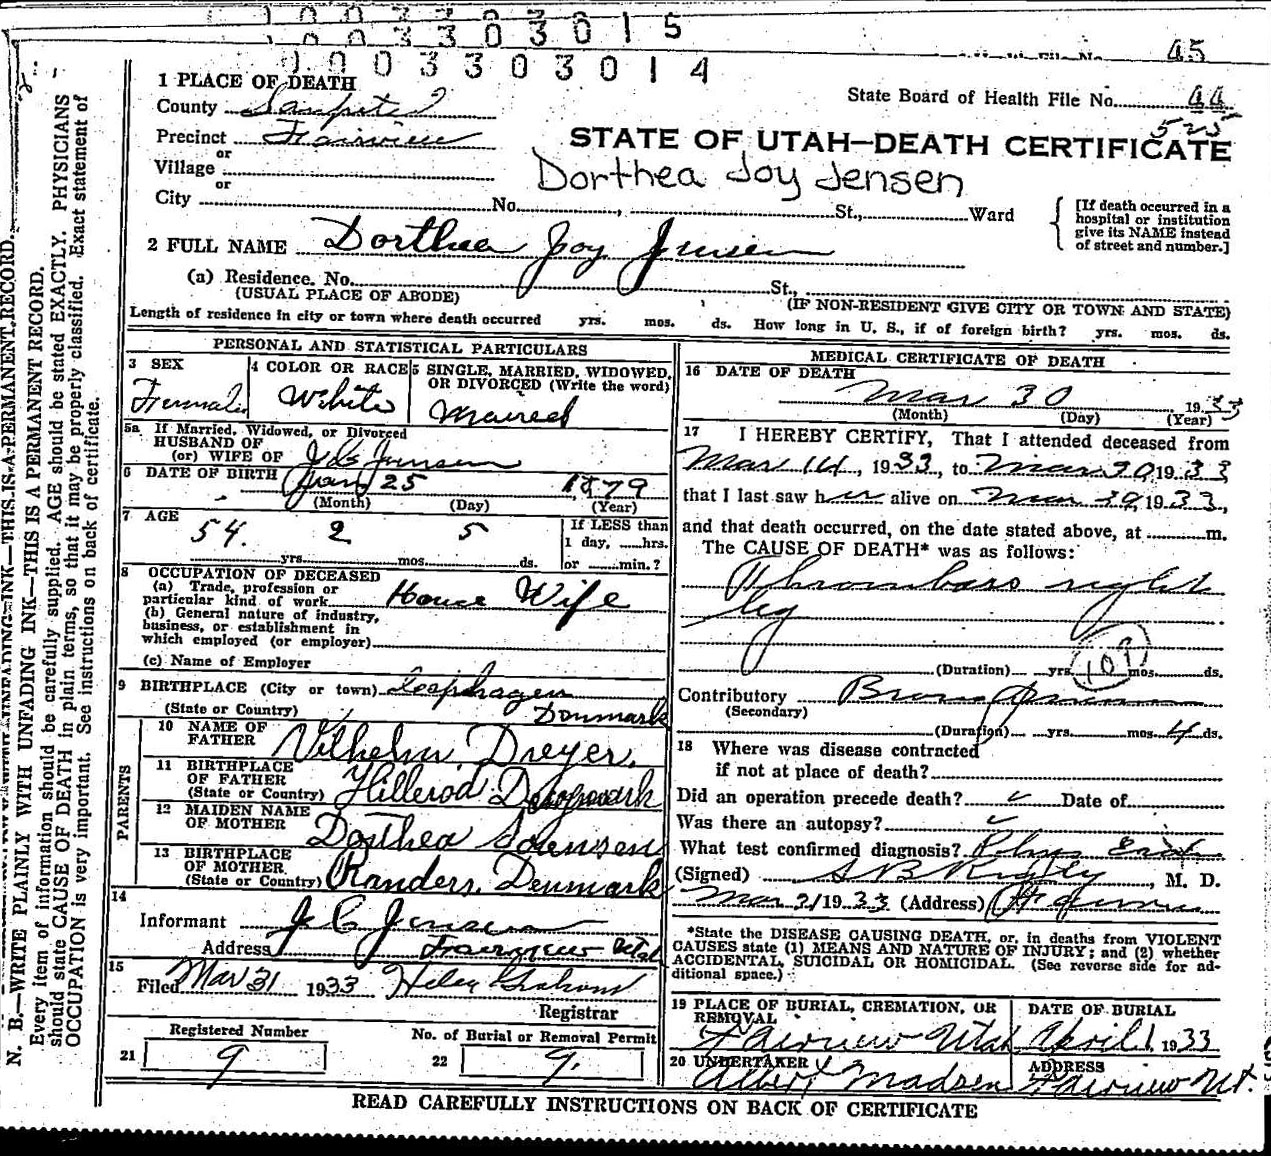 1 0 0 3 3 0 3 0 1 5
45
0 0 0 3 3 0 3 0 1 4
1 PLACE OF DEATH
State Board of Health File No. 44
County Sanpete
525
Precinct Fairview
STATE OF UTAH—DEATH CERTIFICATE
or
Village
Dorthea Joy Jensen
or
City No. , St., Ward
[If death occurred in a hospital or institution give its NAME instead of street and number.]
2 FULL NAME Dorthea Joy Jensen
(a) Residence. No. St.,
(USUAL PLACE OF ABODE) (IF NON-RESIDENT GIVE CITY OR TOWN AND STATE)
Length of residence in city or town where death occurred yrs. mos. ds. How long in U. S., if of foreign birth? yrs. mos. ds.
PERSONAL AND STATISTICAL PARTICULARS
3 SEX
Female
4 COLOR OR RACE
White
5 SINGLE, MARRIED, WIDOWED, OR DIVORCED (Write the word)
Married
5a If Married, Widowed, or Divorced
HUSBAND OF
(or) WIFE OF J C Jensen
6 DATE OF BIRTH Jan 25 1879
(Month) (Day) (Year)
7 AGE
54 2 5
yrs. mos. ds.
If LESS than
1 day, hrs.
or min.?
8 OCCUPATION OF DECEASED
(a) Trade, profession or
particular kind of work House Wife
(b) General nature of industry,
business, or establishment in
which employed (or employer)
(c) Name of Employer
9 BIRTHPLACE (City or town) Copenhagen
(State or Country) Denmark
PARENTS
10 NAME OF FATHER Vilhelm Dreyer.
11 BIRTHPLACE OF FATHER
(State or Country) Hillerod Denmark
12 MAIDEN NAME OF MOTHER Dorthea Sorensen
13 BIRTHPLACE OF MOTHER
(State or Country) Randers, Denmark
14
Informant J C Jensen
Address Fairview Utah
15
Filed Mar 31 1933 Helen Graham
Registrar
Registered Number
21 9
No. of Burial or Removal Permit
22 9.
MEDICAL CERTIFICATE OF DEATH
16 DATE OF DEATH
Mar 30 1933
(Month) (Day) (Year)
17 I HEREBY CERTIFY, That I attended deceased from
Mar 14, 1933, to Mar 30, 1933
that I last saw her alive on Mar 30, 1933,
and that death occurred, on the date stated above, at m.
The CAUSE OF DEATH* was as follows:
Thrombosis right
leg
(Duration) yrs. mos. ds.
107
Contributory
(Secondary)
(Duration) yrs. mos. 4 ds.
18 Where was disease contracted
if not at place of death?
Did an operation precede death? Date of
Was there an autopsy?
What test confirmed diagnosis? Phys Exam
(Signed) , M. D.
Mar 31 1933 (Address)
*State the DISEASE CAUSING DEATH, or, in deaths from VIOLENT
CAUSES state (1) MEANS AND NATURE OF INJURY; and (2) whether
ACCIDENTAL, SUICIDAL OR HOMICIDAL. (See reverse side for ad-
ditional space.)
19 PLACE OF BURIAL, CREMATION, OR REMOVAL
Fairview Utah
DATE OF BURIAL
April 1, 1933
20 UNDERTAKER
Albert Madsen
ADDRESS
Fairview Ut.
READ CAREFULLY INSTRUCTIONS ON BACK OF CERTIFICATE
N. B.—WRITE PLAINLY WITH UNFADING INK—THIS IS A PERMANENT RECORD.
Every item of information should be carefully supplied. AGE should be stated EXACTLY. PHYSICIANS
should state CAUSE OF DEATH in plain terms, so that it may be properly classified. Exact statement of
OCCUPATION is very important. See instructions on back of certificate.